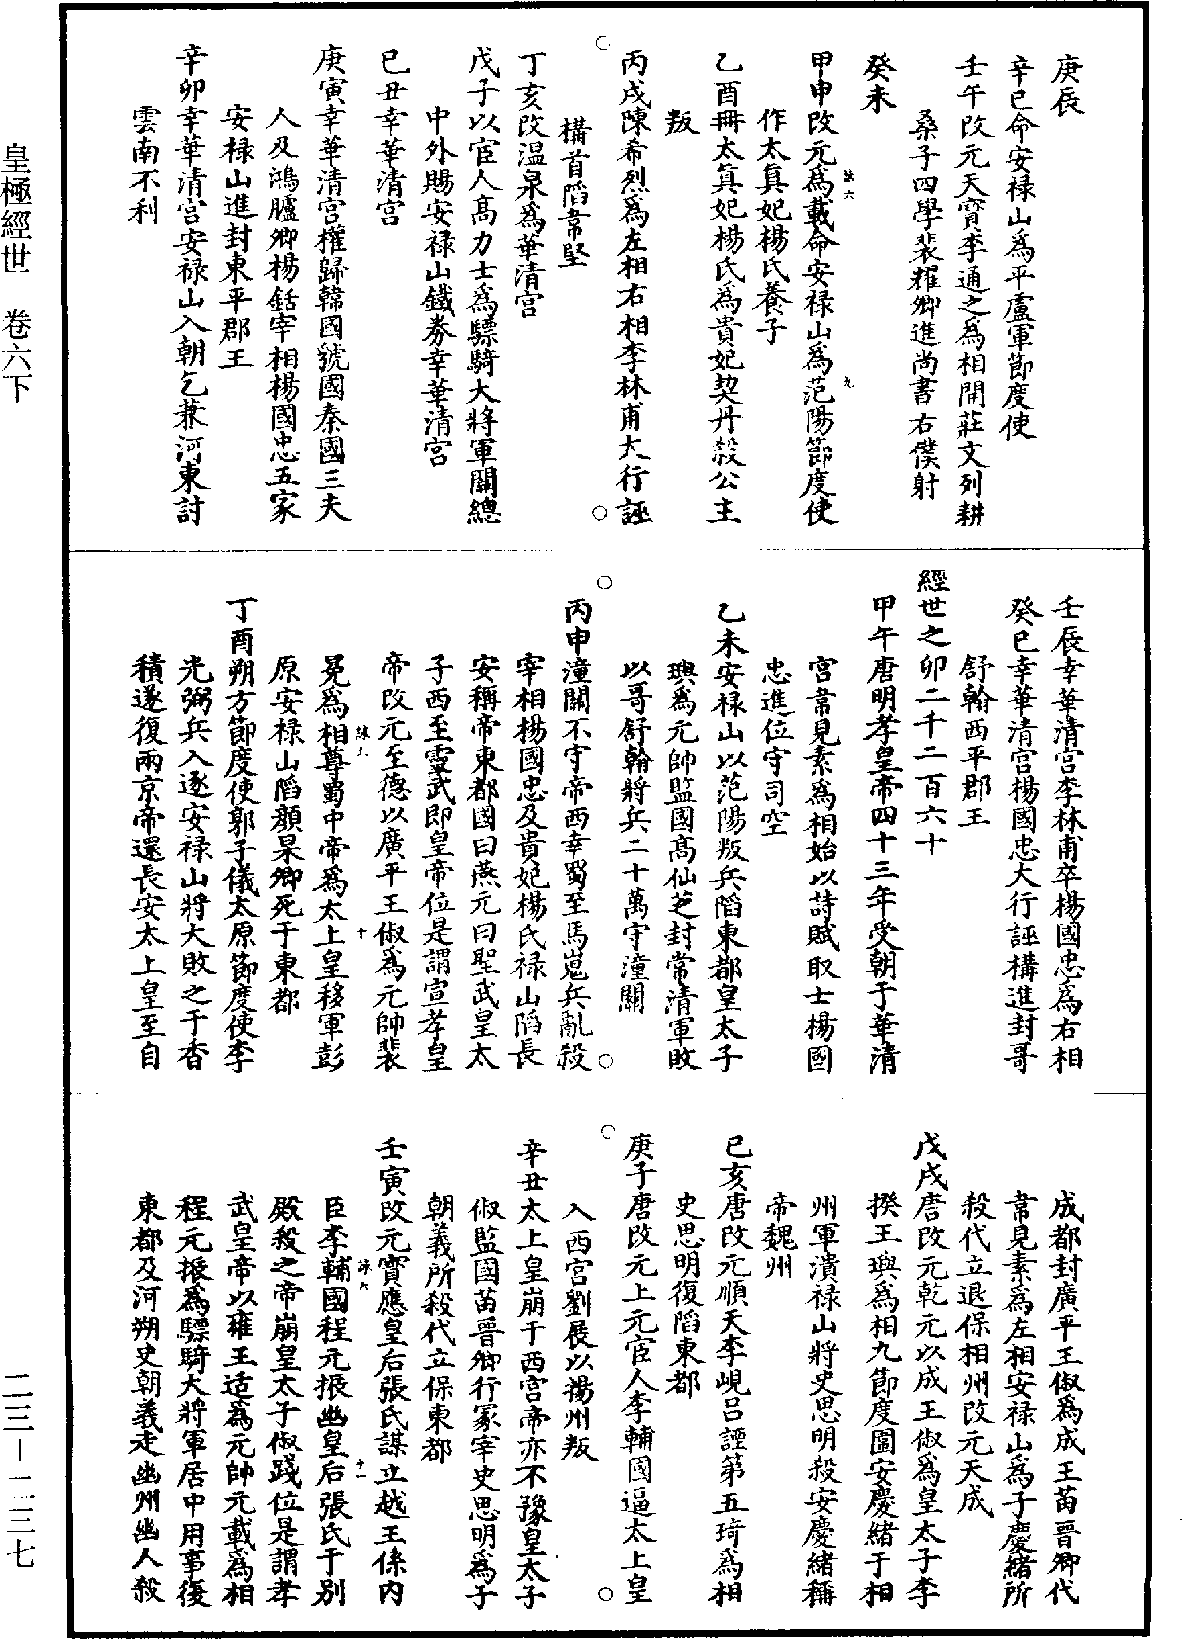 庚辰
辛巳命安禄山爲平盧軍節度使
壬午改元天寶李通之爲相開莊文列耕
桑子四學裴耀卿進尚書右僕射
癸未
甲申改元爲載命安禄山爲范陽節度使
作太眞妃楊氏養子
乙酉冊太眞妃楊氏爲貴妃契丹殺公主
叛
丙戌陳希烈爲左相右相李林甫大行誣
構首䧟韋堅
丁亥改溫泉爲華清宮
戊子以宦人高力士爲驃騎大將軍關總
中外賜安禄山鐵券幸華清宮
己丑幸華清宮
庚寅幸華清宮權歸韓國虢國秦國三夫
人及鴻臚卿楊銛宰相楊國忠五家
安禄山進封東平郡王
辛卯幸華清宮安禄山入朝乞兼河東討
雲南不利
壬辰幸華清宮李林甫卒楊國忠爲右相
癸巳幸華清宮楊國忠大行誣構進封哥
舒翰西平郡王
經世之卯二千二百六十
甲午唐明孝皇帝四十三年受朝于華清
宮韋見素爲相始以詩賦取士楊國
忠進位守司空
乙未安禄山以范陽叛兵䧟東都皇太子
璵爲元帥監國高仙芝封常清軍敗
以哥舒翰將兵二十萬守潼關
丙申潼關不守帝西幸蜀至馬嵬兵亂殺
宰相楊國忠及貴妃楊氏禄山䧟長
安稱帝東都國曰燕元曰聖武皇太
子西至靈武即皇帝位是謂宣孝皇
帝改元至德以廣平王俶爲元帥裴
冕爲相尊蜀中帝爲太上皇移軍彭
原安禄山䧟顏杲卿死于東都
丁酉朔方節度使郭子儀太原節度使李
光弼兵入逐安禄山將大敗之于香
積遂復兩京帝還長安太上皇至自
成都封廣平王俶爲成王苗晋卿代
韋見素爲左相安禄山爲子慶緒所
殺代立退保相州改元天成
戊戌唐改元乾元以成王俶爲皇太子李
揆王璵爲相九節度圍安慶緒于相
州軍潰禄山將史思明殺安慶緒稱
帝魏州
己亥唐改元順天李峴呂諲第五琦爲相
史思明復䧟東都
庚子唐改元上元宦人李輔國逼太上皇
入西宮劉展以揚州叛
辛丑太上皇崩于西宮帝亦不豫皇太子
俶監國苗晋卿行冢宰史思明爲子
朝義所殺代立保東都
壬寅改元寶應皇后張氏謀立越王係内
臣李輔國程元振幽皇后張氏于別
殿殺之帝崩皇太子俶踐位是謂孝
武皇帝以雍王适爲元帥元載爲相
程元振爲驃騎大將軍居中用事復
東都及河朔史朝義走幽州幽人殺
皇極經世　卷六下
二三—一二三七